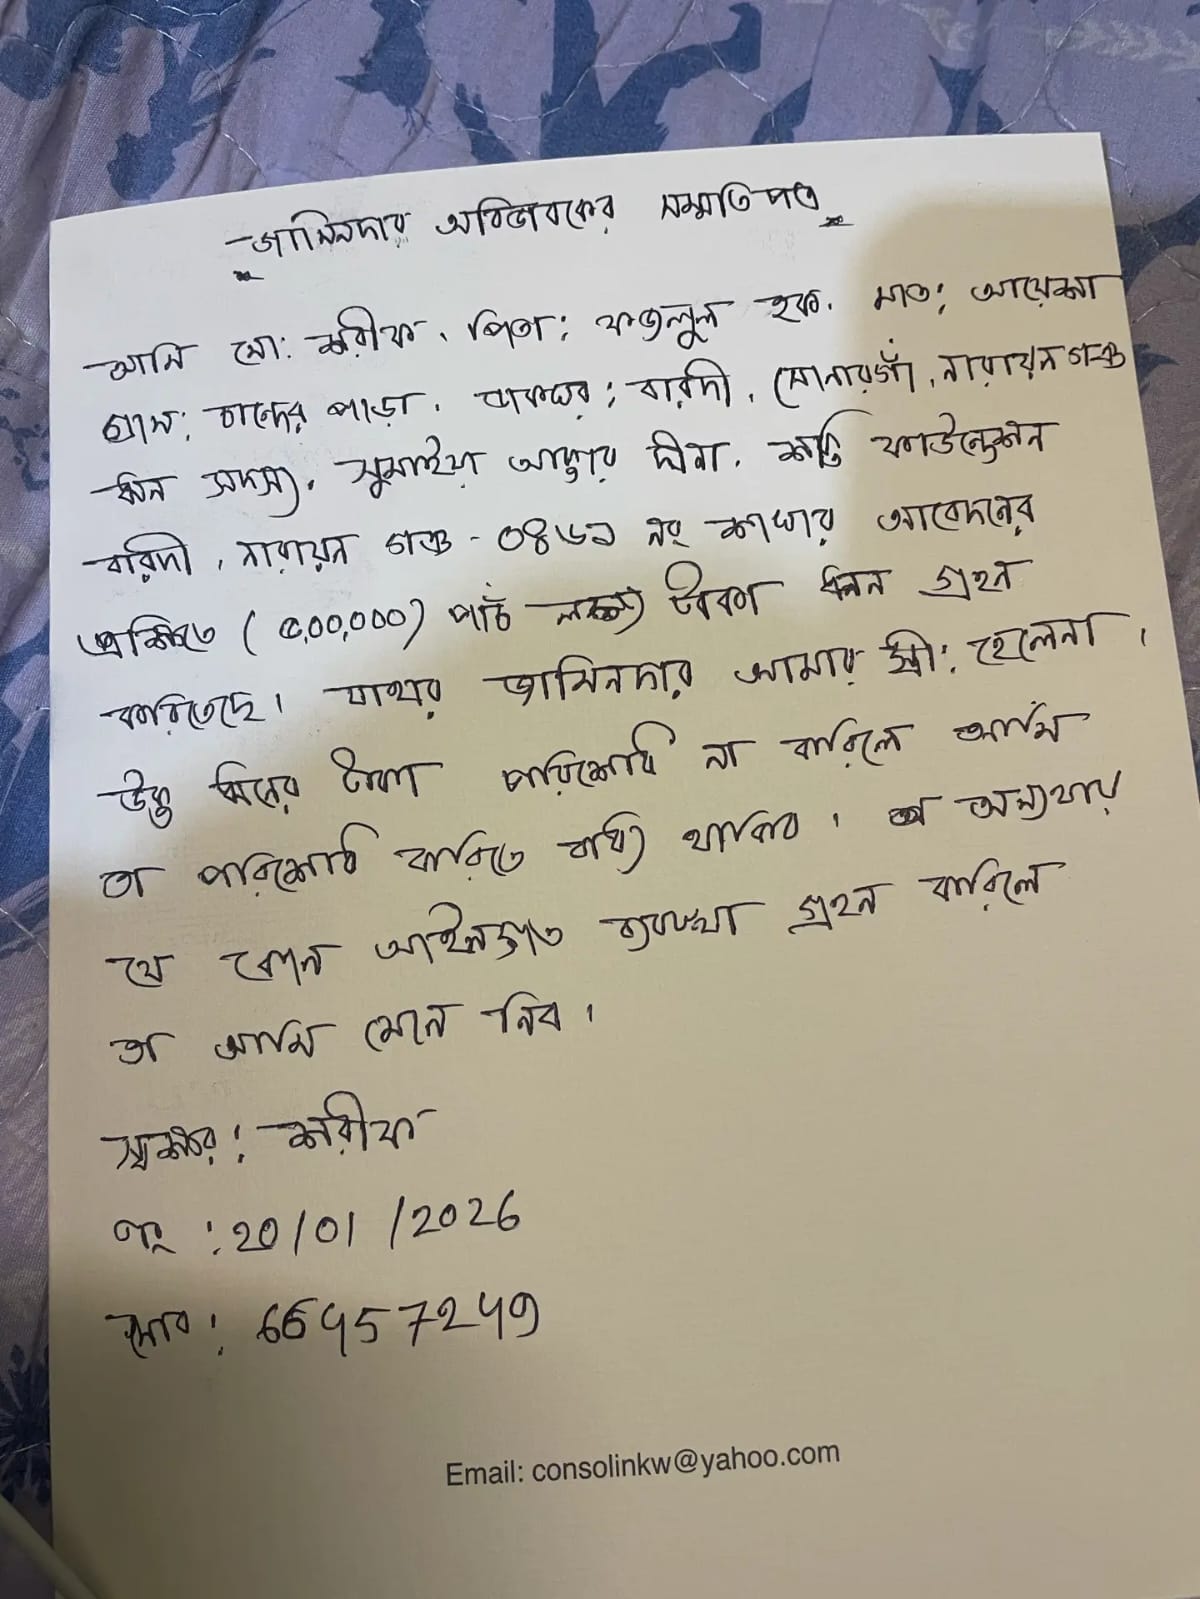 জামিনদার অবিভাবকের সম্মতি পত্র
আমি মো: শরীফ, পিতা: ফজলুল হক, মাতা: আয়েশা
গ্রাম: চান্দের পাড়া, ডাকঘর: বারদী, সোনারগাঁ, নারায়নগঞ্জ
ঋন সদস্য, সুমাইয়া আক্তার দীনা, শক্তি ফাউন্ডেশন
বারদী, নারায়ন গঞ্জ - ০৪৬১ নং শাখার আবেদনের
প্রেক্ষিতে (৫,00,000) পাঁচ লক্ষ্য টাকা ঋন গ্রহন
করিতেছে। যাহার জামিনদার আমার স্ত্রী: হেলেনা।
উক্ত ঋনের টাকা পরিশোধ না করিলে আমি
তা পরিশোধ করিতে বাধ্য থাকিব। অন্যথায়
যে কোন আইনগত ব্যবস্থা গ্রহন করিলে
তা আমি মেনে নিব।
স্বাক্ষর: শরীফ
তাং : 20/01/2026
মোবা: 66957249
Email: consolinkw@yahoo.com